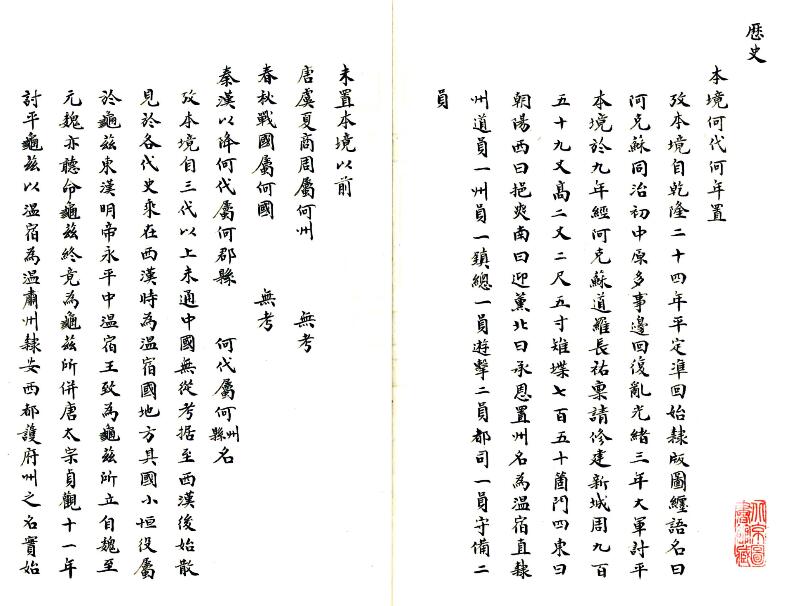 歷史
本境何代何年置
攷本境自乾隆二十四年平定準回始隸版圖纏語名曰
阿克蘇同治初中原多事邊回復亂光緒三年大軍討平
本境於九年經阿克蘇道羅長祐稟請修建新城周九百
五十九丈高二丈二尺五寸雉堞七百五十箇門四東曰
朝陽西曰挹爽南曰迎薰北曰承恩置州名為溫宿直隸
州道員一州員一鎮總一員遊擊二員都司一員守備二
員
未置本境以前
唐虞夏商周屬何州 無考
春秋戰國屬何國 無考
秦漢以降何代屬何郡縣 何代屬何州縣名
攷本境自三代以上未通中國無從考据至西漢後始散
見於各代史乘在西漢時為溫宿國地方具國小恒役屬
於龜茲東漢明帝永平中溫宿王致為龜茲所立自魏至
元魏亦聽命龜茲終竟為龜茲所併唐太宗貞觀十一年
討平龜茲以溫宿為溫肅州隸安西都護府州之名實始